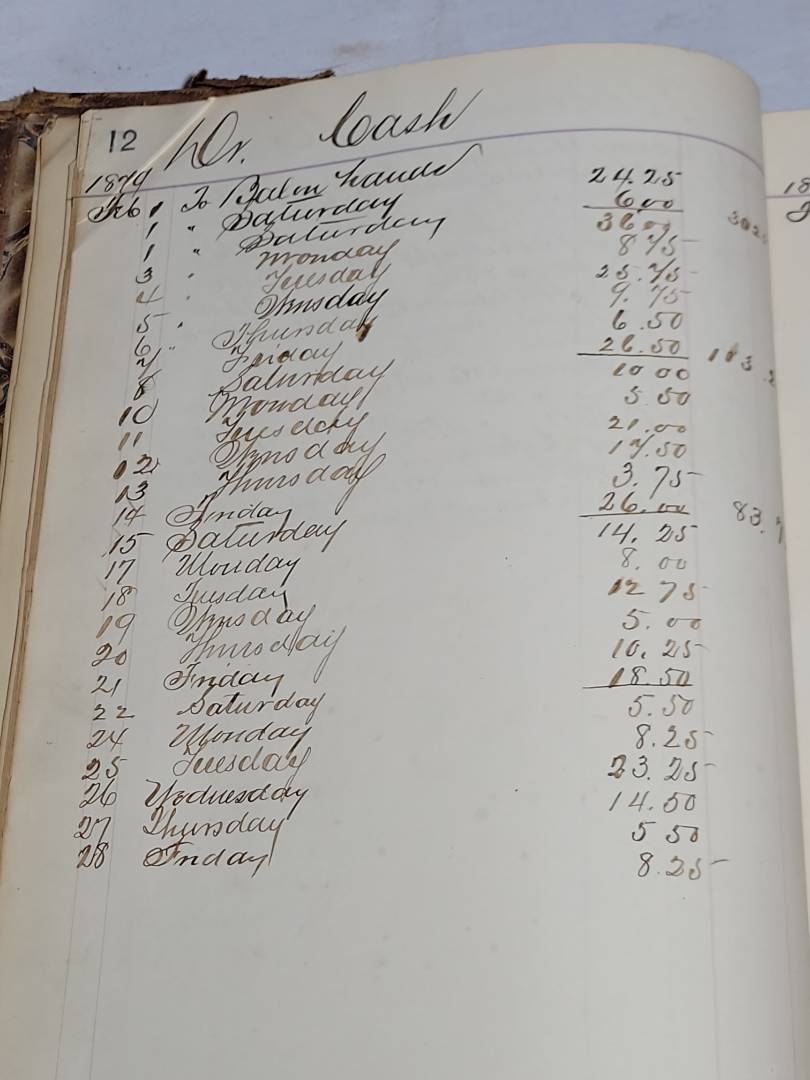 12 Dr. Cash
1879
Feb 1 To Bal on hand 24.25
1 " Saturday 6.00
1 " Saturday 36.00
3 " Monday 8 75
4 " Tuesday 25.75
5 " Wensday 9.75
6 " Thursday 6.50
7 Friday 26.50
8 Saturday 10 00
10 Monday 5.50
11 Tuesday 21.00
12 Wensday 17.50
13 Thursday 3.75
14 Friday 26.00
15 Saturday 14.25
17 Monday 8.00
18 Tuesday 12 75
19 Wensday 5.00
20 Thursday 10.25
21 Friday 18.50
22 Saturday 5.50
24 Monday 8.25
25 Tuesday 23.25
26 Wednesday 14.50
27 Thursday 5 50
28 Friday 8.25